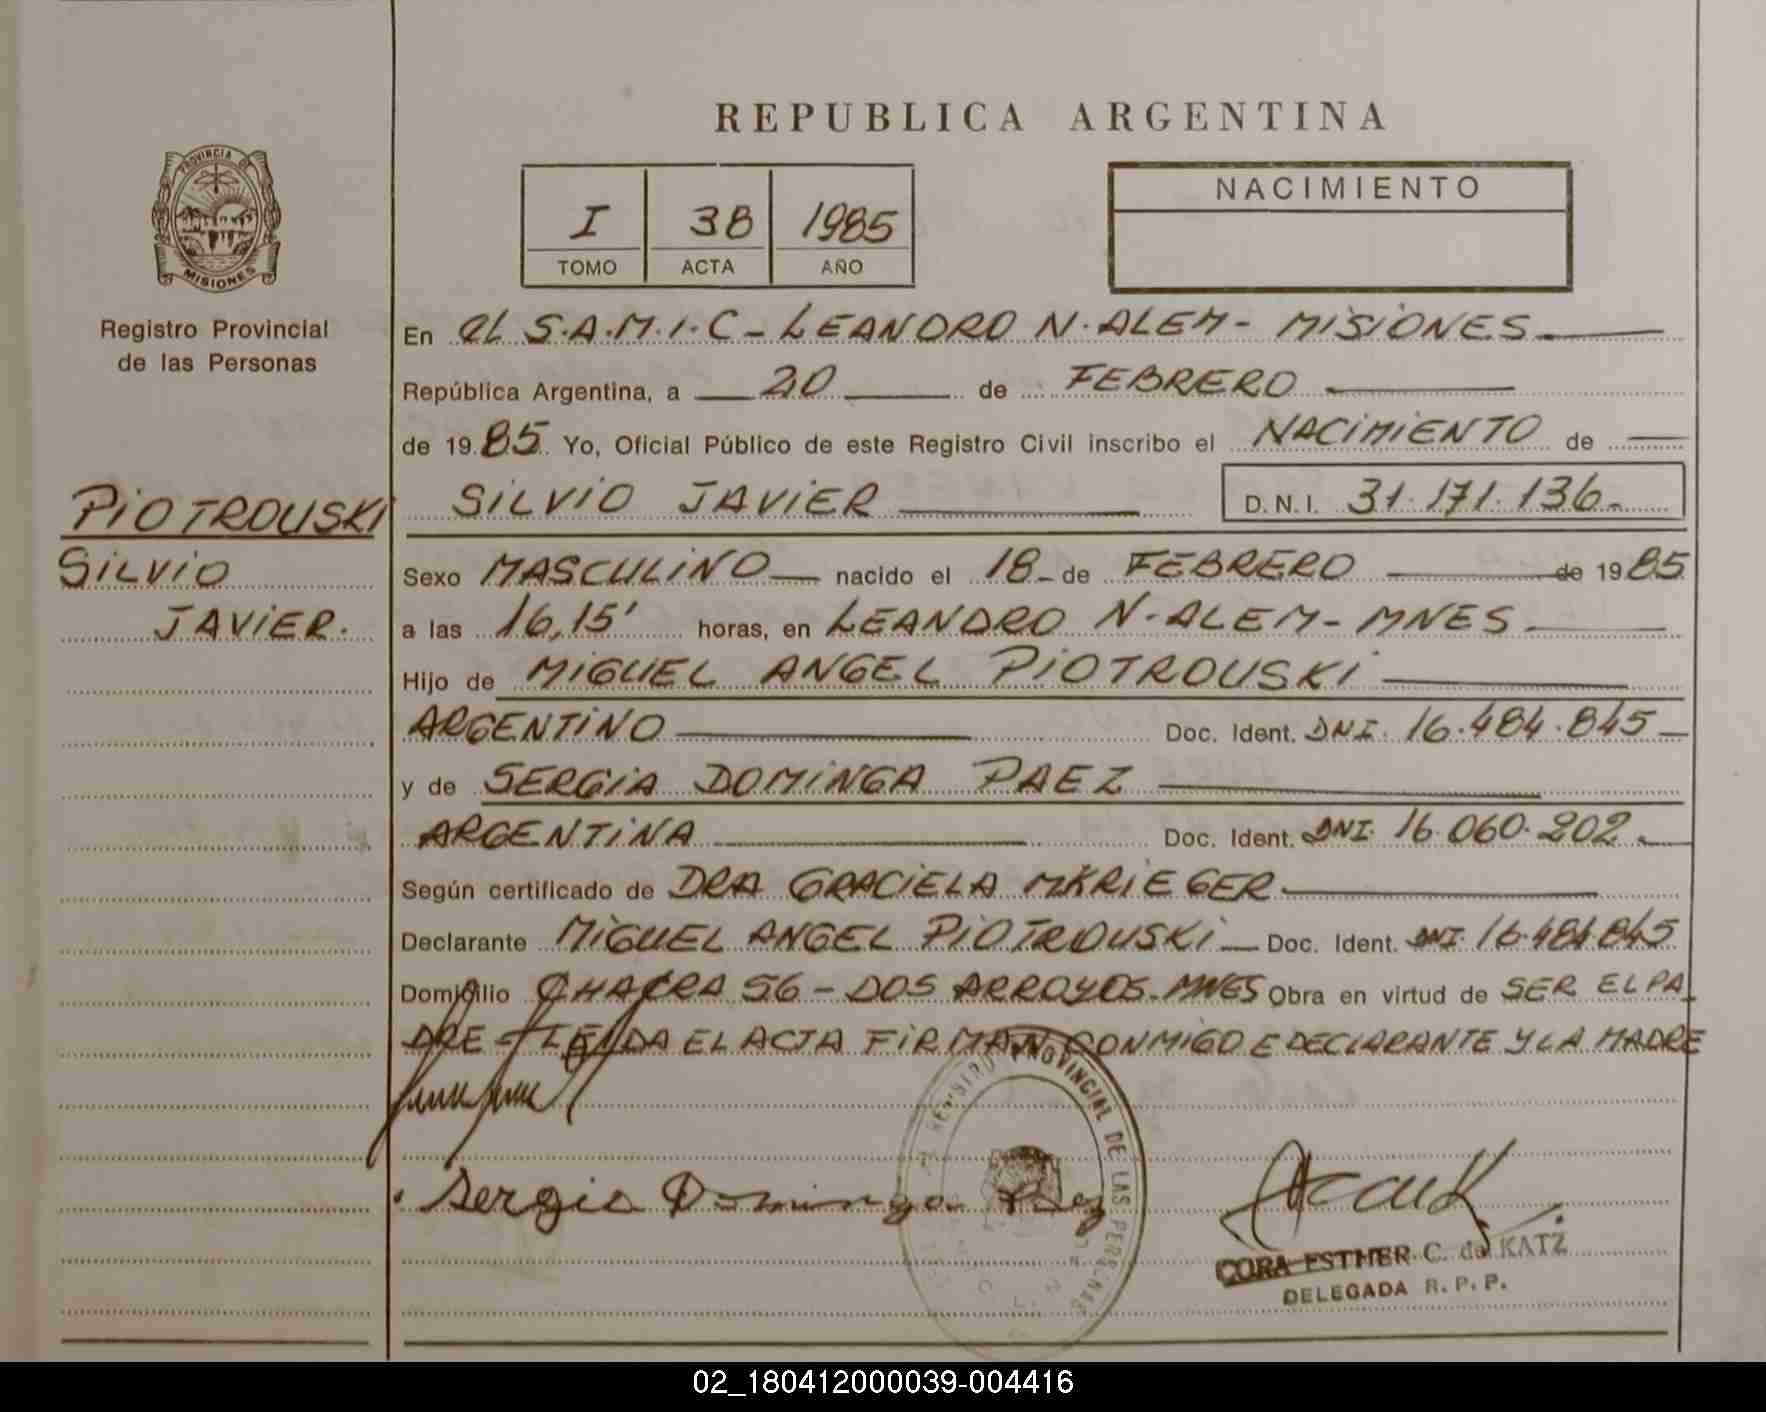 REPUBLICA ARGENTINA
PROVINCIA DE
MISIONES
Registro Provincial
de las Personas
I 38 1985
TOMO ACTA AÑO
NACIMIENTO
En el S.A.M.I.C - LEANDRO N. ALEM - MISIONES
República Argentina, a 20 de FEBRERO
de 1985. Yo, Oficial Público de este Registro Civil inscribo el NACIMIENTO de
SILVIO JAVIER D.N.I. 31.171.136.-
PIOTROUSKI
SILVIO
JAVIER.
Sexo MASCULINO nacido el 18 - de FEBRERO de 1985
a las 16,15' horas, en LEANDRO N. ALEM - MNES
Hijo de MIGUEL ANGEL PIOTROUSKI
ARGENTINO Doc. Ident. DNI. 16.484.845
y de SERGIA DOMINGA PAEZ
ARGENTINA Doc. Ident. DNI. 16.060.202.
Según certificado de DRA GRACIELA M KRIEGER
Declarante MIGUEL ANGEL PIOTROUSKI Doc. Ident. DNI. 16.484.845
Domicilio CHACRA 56 - DOS ARROYOS - MNES Obra en virtud de SER EL PA
DRE - LEIDA EL ACTA FIRMAN CONMIGO E DECLARANTE Y LA MADRE
REGISTRO PROVINCIAL DE LAS PERSONAS
Sergia Dominga Paez
CORA ESTHER C. de KATZ
DELEGADA R. P. P.
02_180412000039-004416